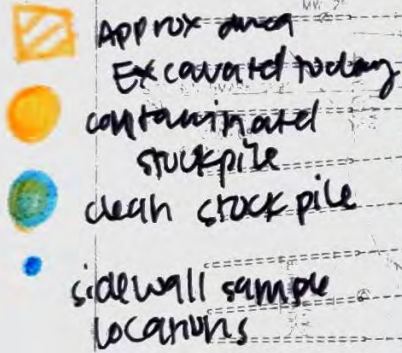 Approx area
Excavated today
contaminated
stockpile
clean stockpile
sidewall sample
locations